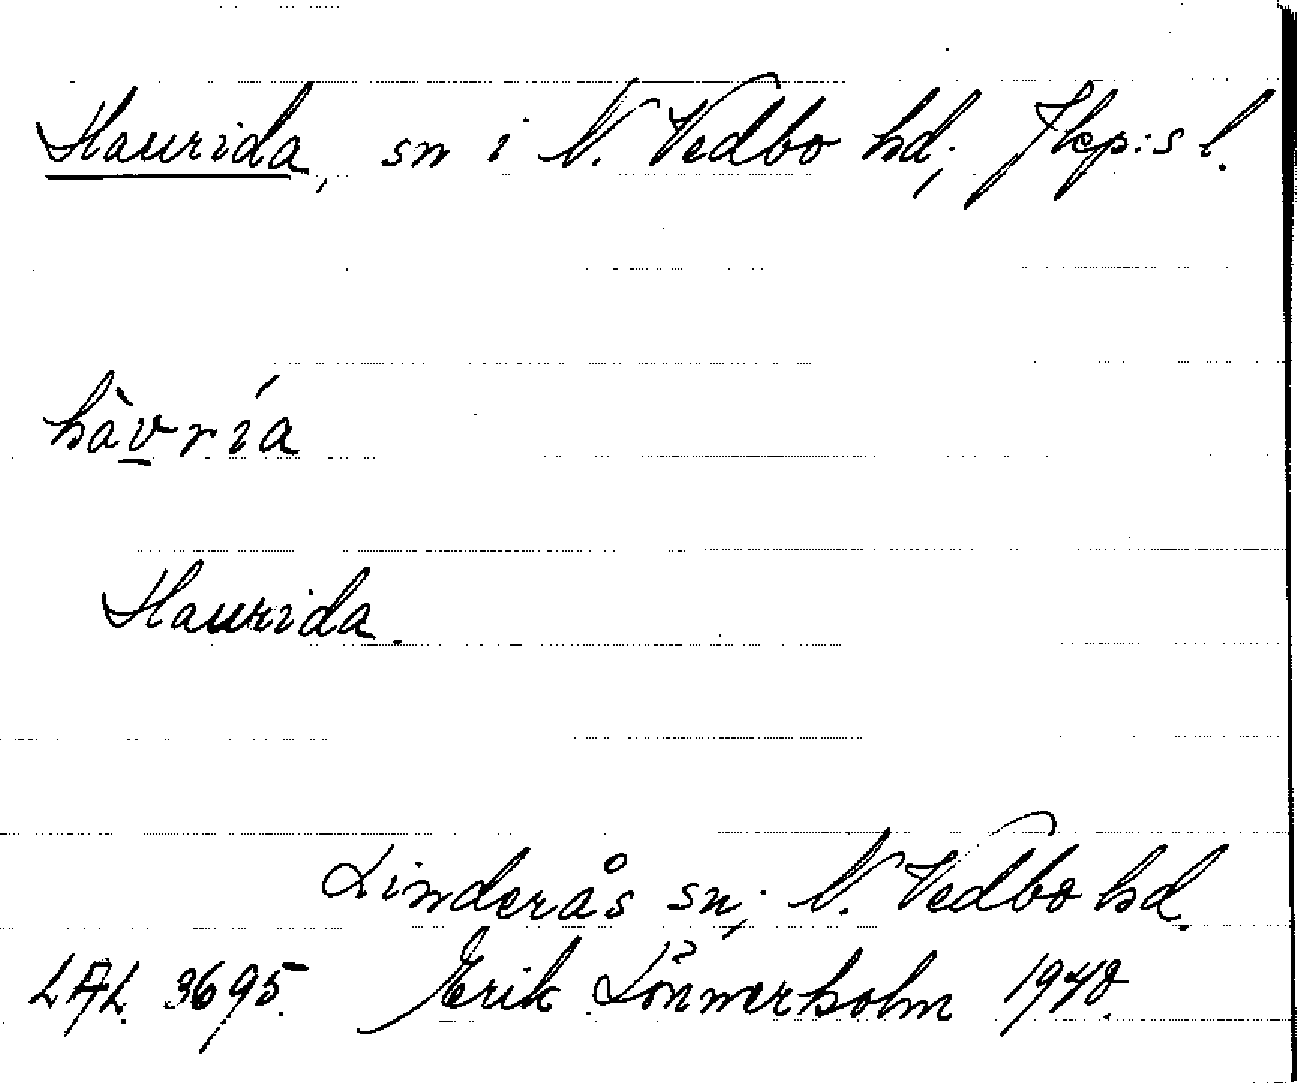 Haurida, sn i N. Vedbo hd, Jkp:s l.
hàv̲ría
Haurida.
Linderås sn, N. Vedbo hd.
LAL. 3695. Erik Lönnerholm 1940.